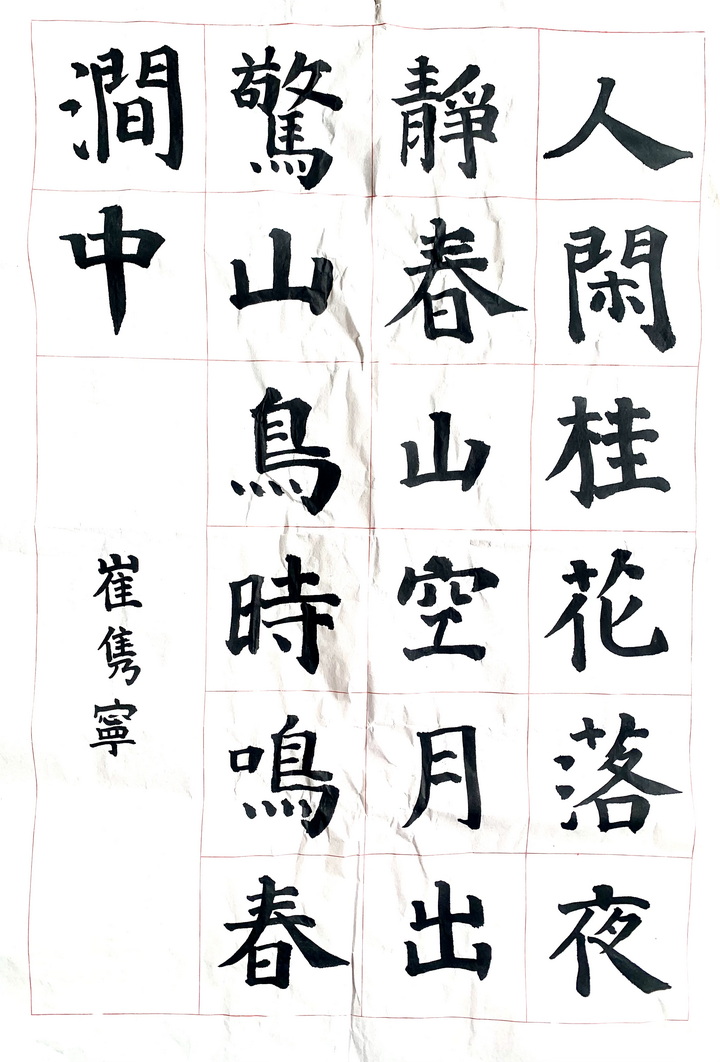 人閑桂花落夜
靜春山空月出
驚山鳥時鳴春
澗中
崔雋寧